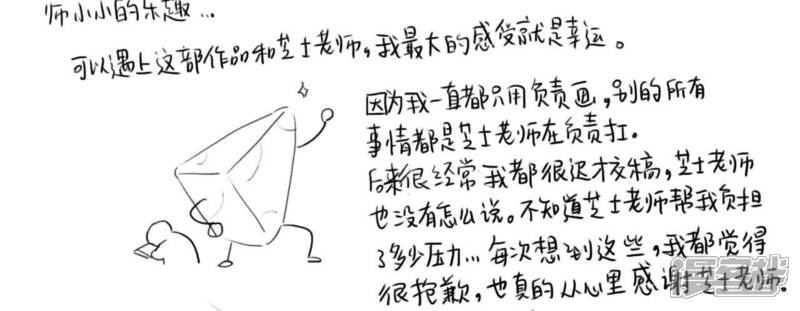 师小小的乐趣...
可以遇上这部作品和芝士老师，我最大的感受就是幸运。
因为我一直都只用负责画，别的所有
事情都是芝士老师在负责扛。
后来很经常我都很迟才交稿，芝士老师
也没有怎么说。不知道芝士老师帮我负担
了多少压力...每次想到这些，我都觉得
很抱歉，也真的从心里感谢芝士老师.